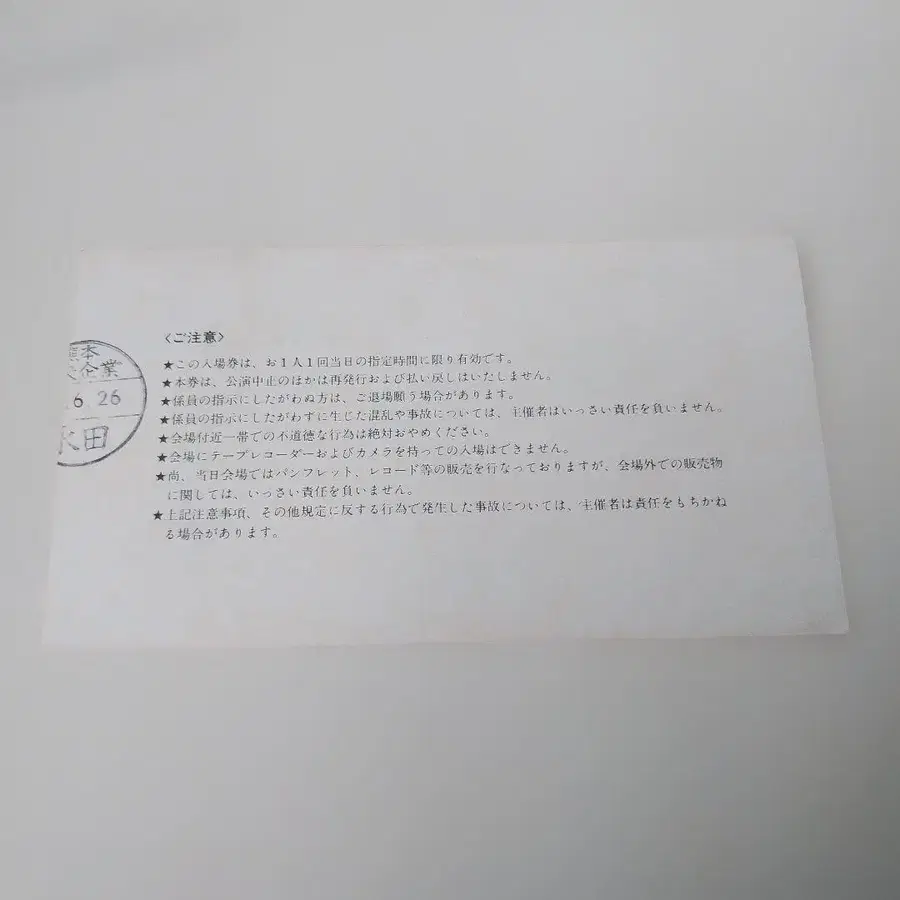 本
企業
6. 26
田
〈ご注意〉
★この入場券は、お1人1回当日の指定時間に限り有効です。
★本券は、公演中止のほかは再発行および払い戻しはいたしません。
★係員の指示にしたがわぬ方は、ご退場願う場合があります。
★係員の指示にしたがわずに生じた混乱や事故については、主催者はいっさい責任を負いません。
★会場付近一帯での不道徳な行為は絶対おやめください。
★会場にテープレコーダーおよびカメラを持っての入場はできません。
★尚、当日会場ではパンフレット、レコード等の販売を行なっておりますが、会場外での販売物
に関しては、いっさい責任を負いません。
★上記注意事項、その他規定に反する行為で発生した事故については、主催者は責任をもちかね
る場合があります。